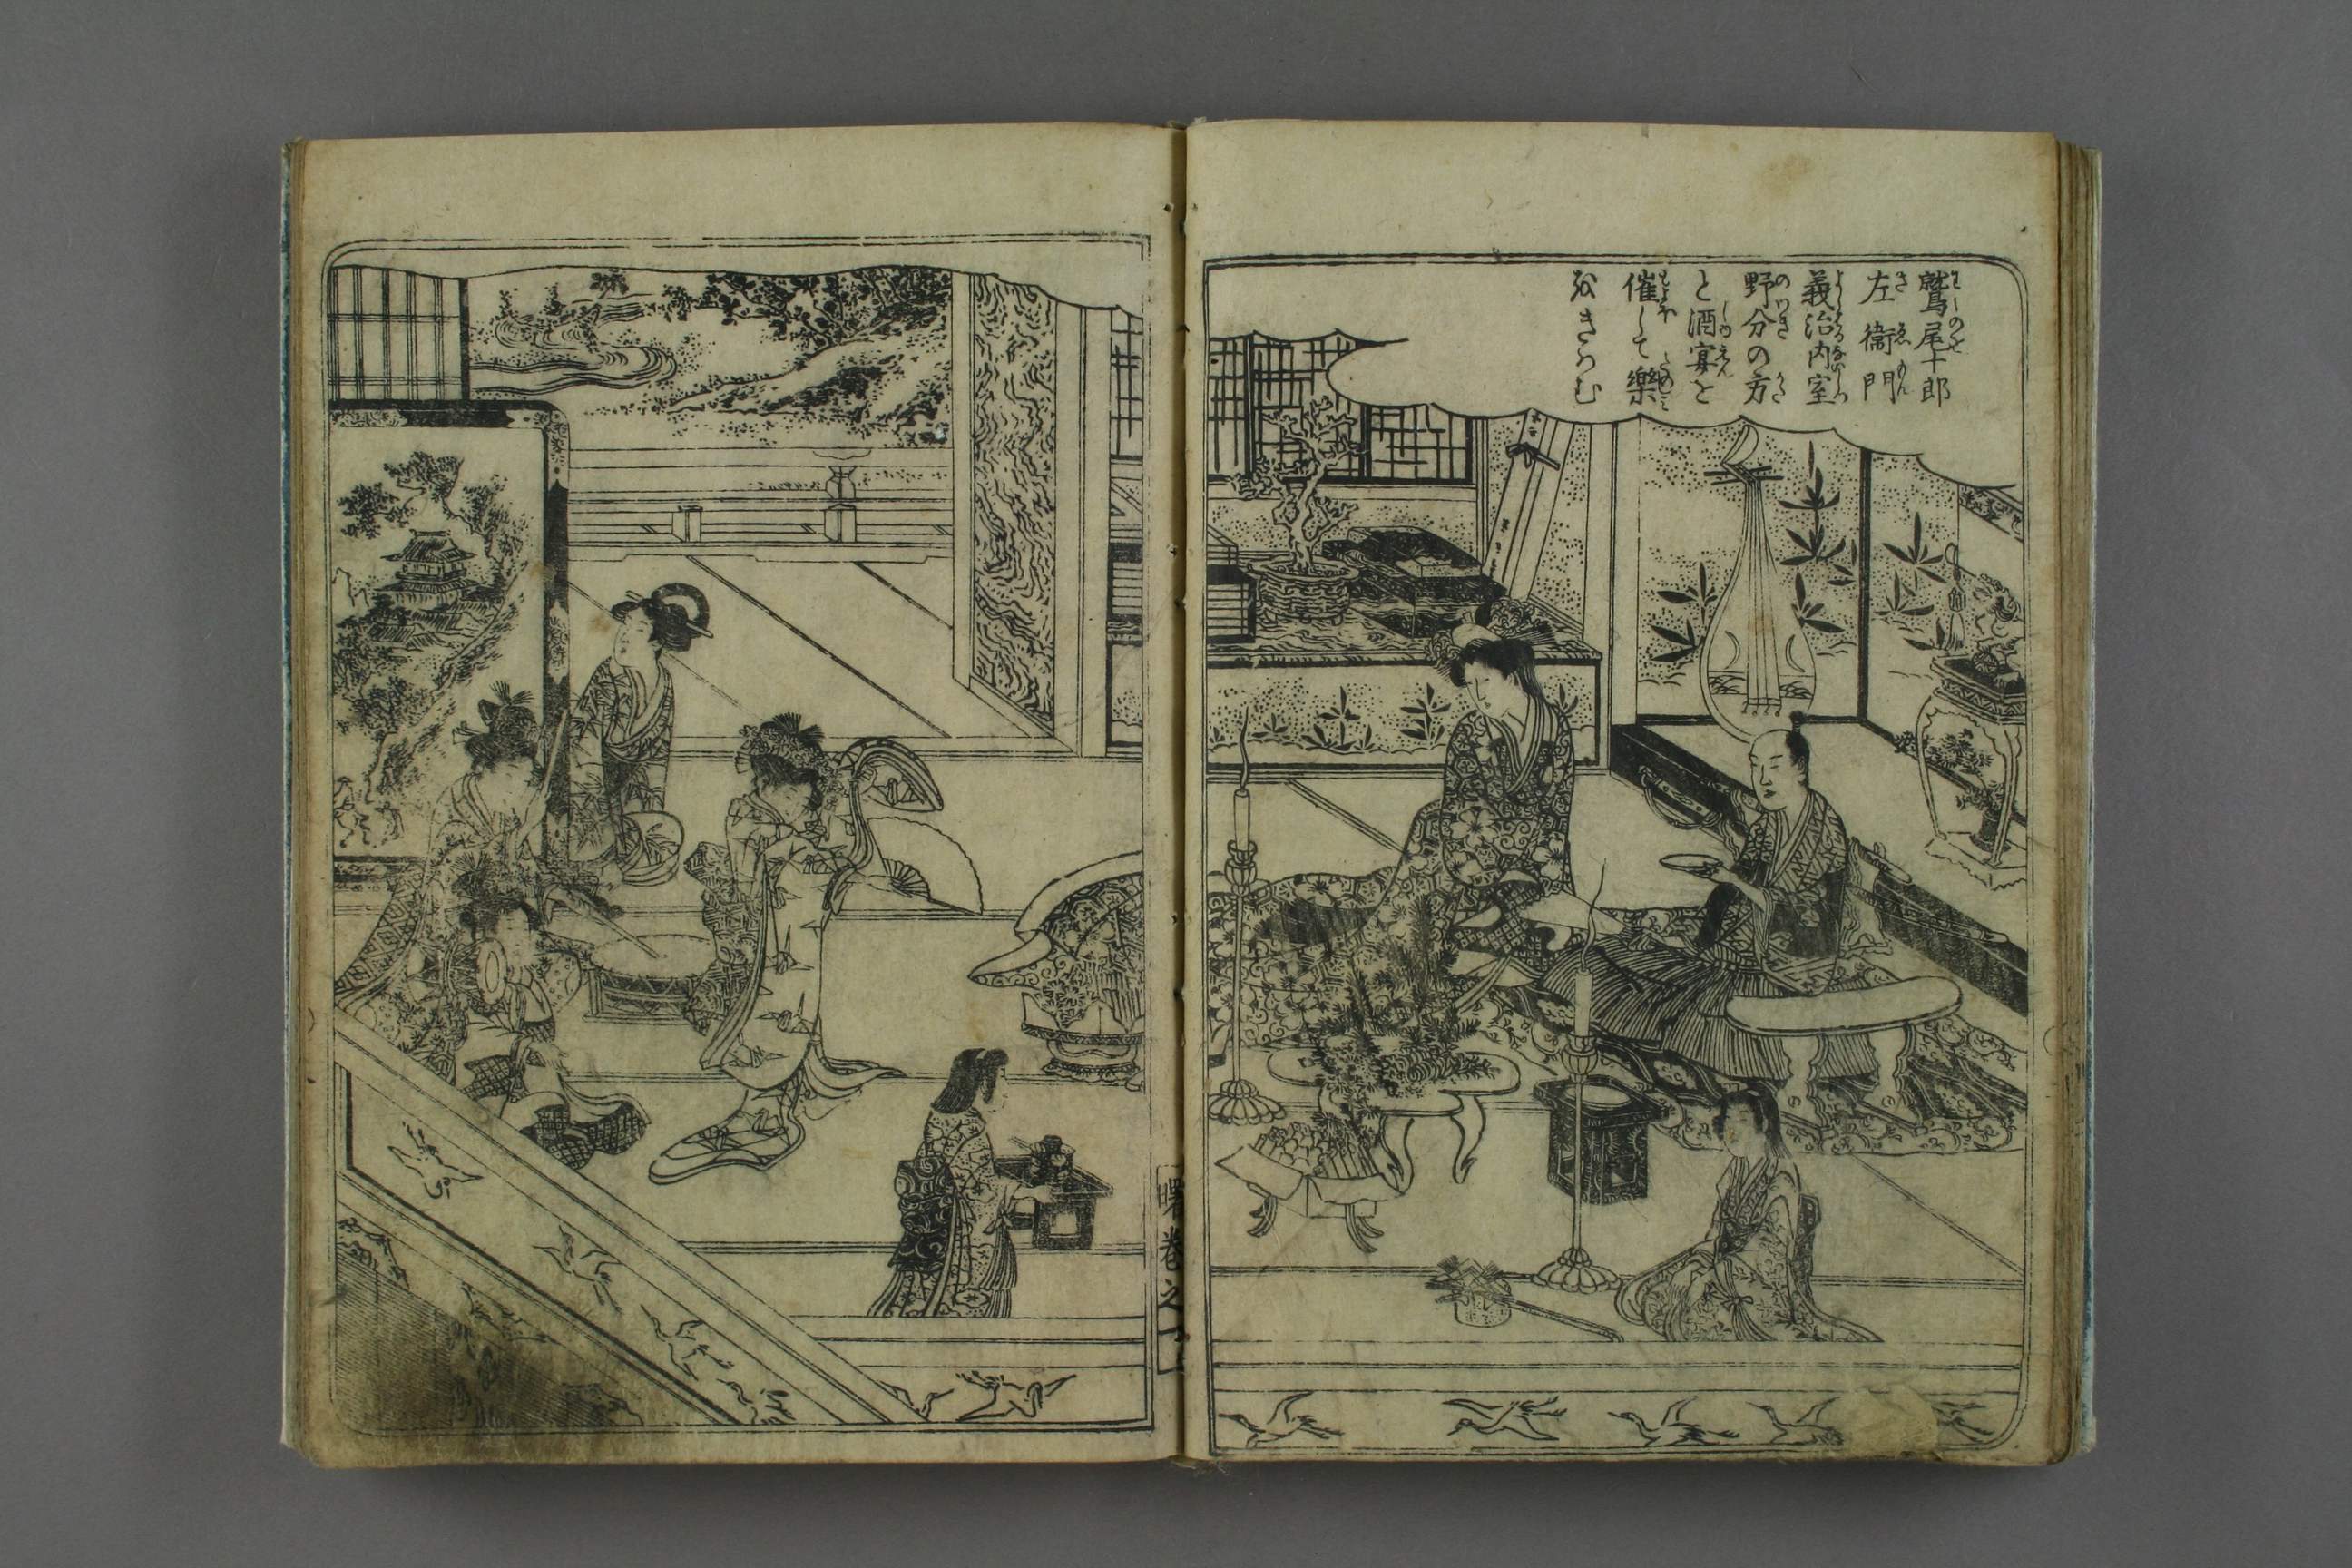 鷲尾十郎
左衞門
義治内室
野分の方
と酒宴を
催して樂
をきはむ
曙巻之